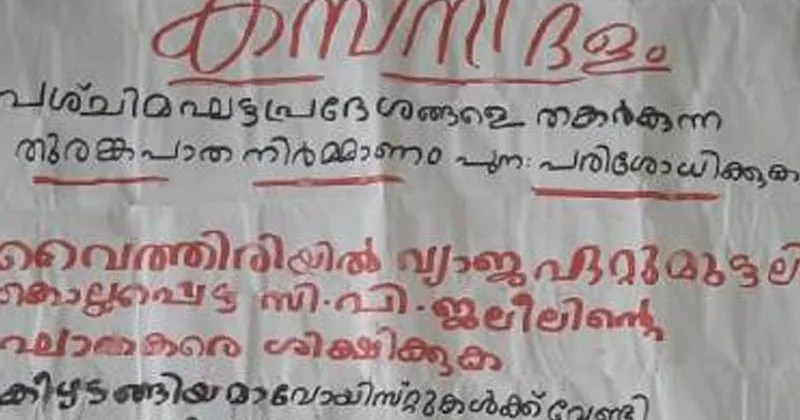 കബനീ ദളം
പശ്ചിമഘട്ടപ്രദേശങ്ങളെ തകർക്കുന്ന
തുരങ്കപാത നിർമ്മാണം പുനഃ പരിശോധിക്കുക
വൈത്തിരിയിൽ വ്യാജഏറ്റുമുട്ടലി
കൊല്ലപ്പെട്ട സി.പി.ജലീലിന്റെ
ഘാതകരെ ശിക്ഷിക്കുക
കീഴടങ്ങിയ മാവോയിസ്റ്റുകൾക്ക് വേണ്ടി